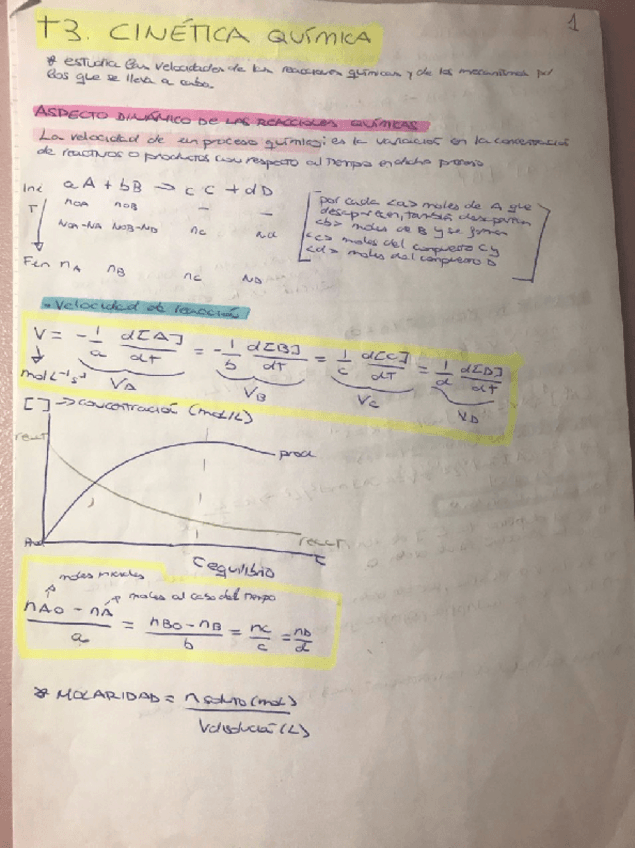 1
T3. CINÉTICA QUÍMICA
* estudia las velocidades de las reacciones químicas y de los mecanismos por
los que se lleva a cabo.
ASPECTO DINÁMICO DE LAS REACCIONES QUÍMICAS
La velocidad de un proceso químico: es la variación en la concentración
de reactivos o productos con respecto al tiempo en dicho proceso
Ini aA + bB → cC + dD
nOA nOB — —
T nOA-nA nOB-nB nc nd
Fin nA nB nc nD
por cada <a> moles de A que
desaparecen, también desaparecen
<b> moles de B y se forman
<c> moles del compuesto C y
<d> moles del compuesto D
• Velocidad de reacción
V = -1/a d[A]/dT = -1/b d[B]/dT = 1/c d[C]/dT = 1/d d[D]/dT
mol L⁻¹ s⁻¹ VA VB VC VD
[ ] → concentración (mol/L)
react
prod
react
equilibrio
moles iniciales
moles al cabo del tiempo
nAO - nA/a = nBO - nB/b = nC/c = nD/d
* MOLARIDAD = n soluto (mol)/V disolución (L)